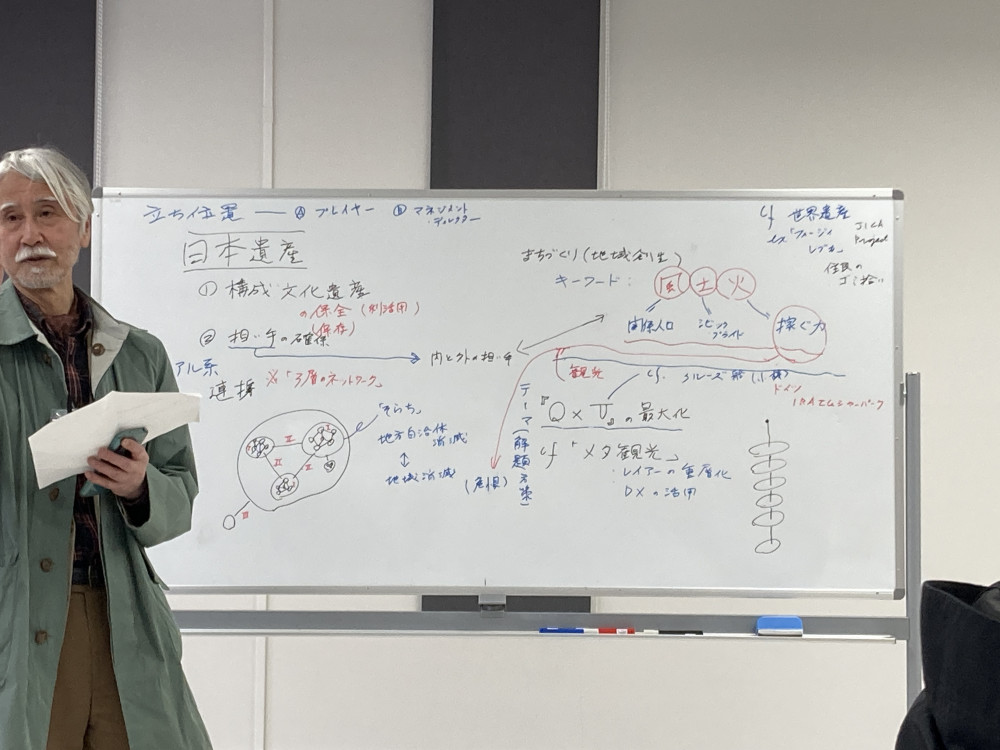 立ち位置 ― Ⓐ プレイヤー Ⓑ マネジメント・ディレクター
日本遺産
① 構成文化遺産
の保全(利活用)
(保存)
② 担い手の確保
内と外の担い手
アル系
連携 ※「3層のネットワーク」
「そらち」
地方自治体
消滅
↕
地域消滅
Ⅱ
Ⅱ
Ⅲ
まちづくり(地域創生)
キーワード:
風 土 火
関係人口
シビック
プライド
稼ぐ力
観光
cf. クルーズ船
ドイツ
テーマ(解題)方策
(危惧)
『Q × T』の最大化
cf「メタ観光」
・レイアーの重層化
DXの活用
cf 世界遺産
JICA
Project
住民の
ゴミ拾い